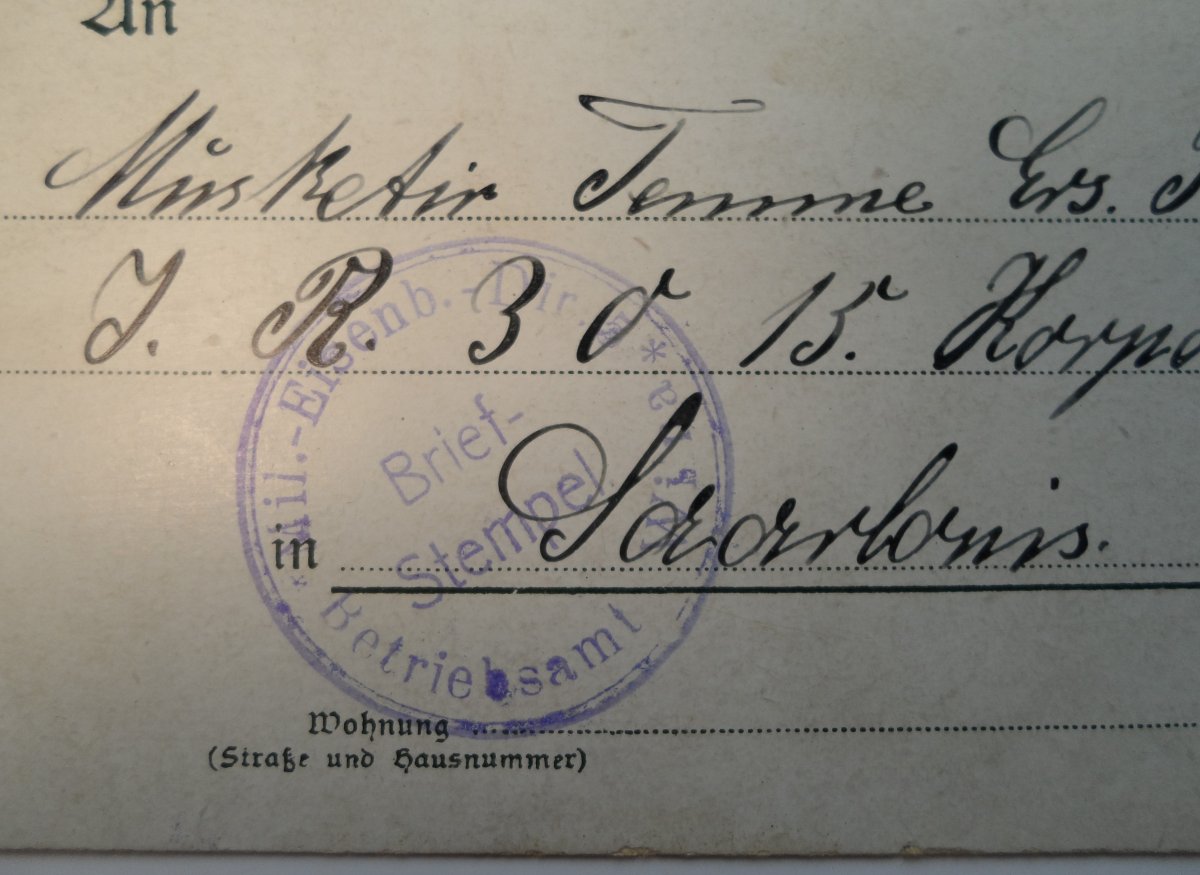 An
Musketir Temme Ers.
J. R. 30 15. Korpo
in Saarlouis.
Mil.-Eisenb.-Dir. * *
Brief-
Stempel
Betriebsamt
Wohnung
(Straße und Hausnummer)